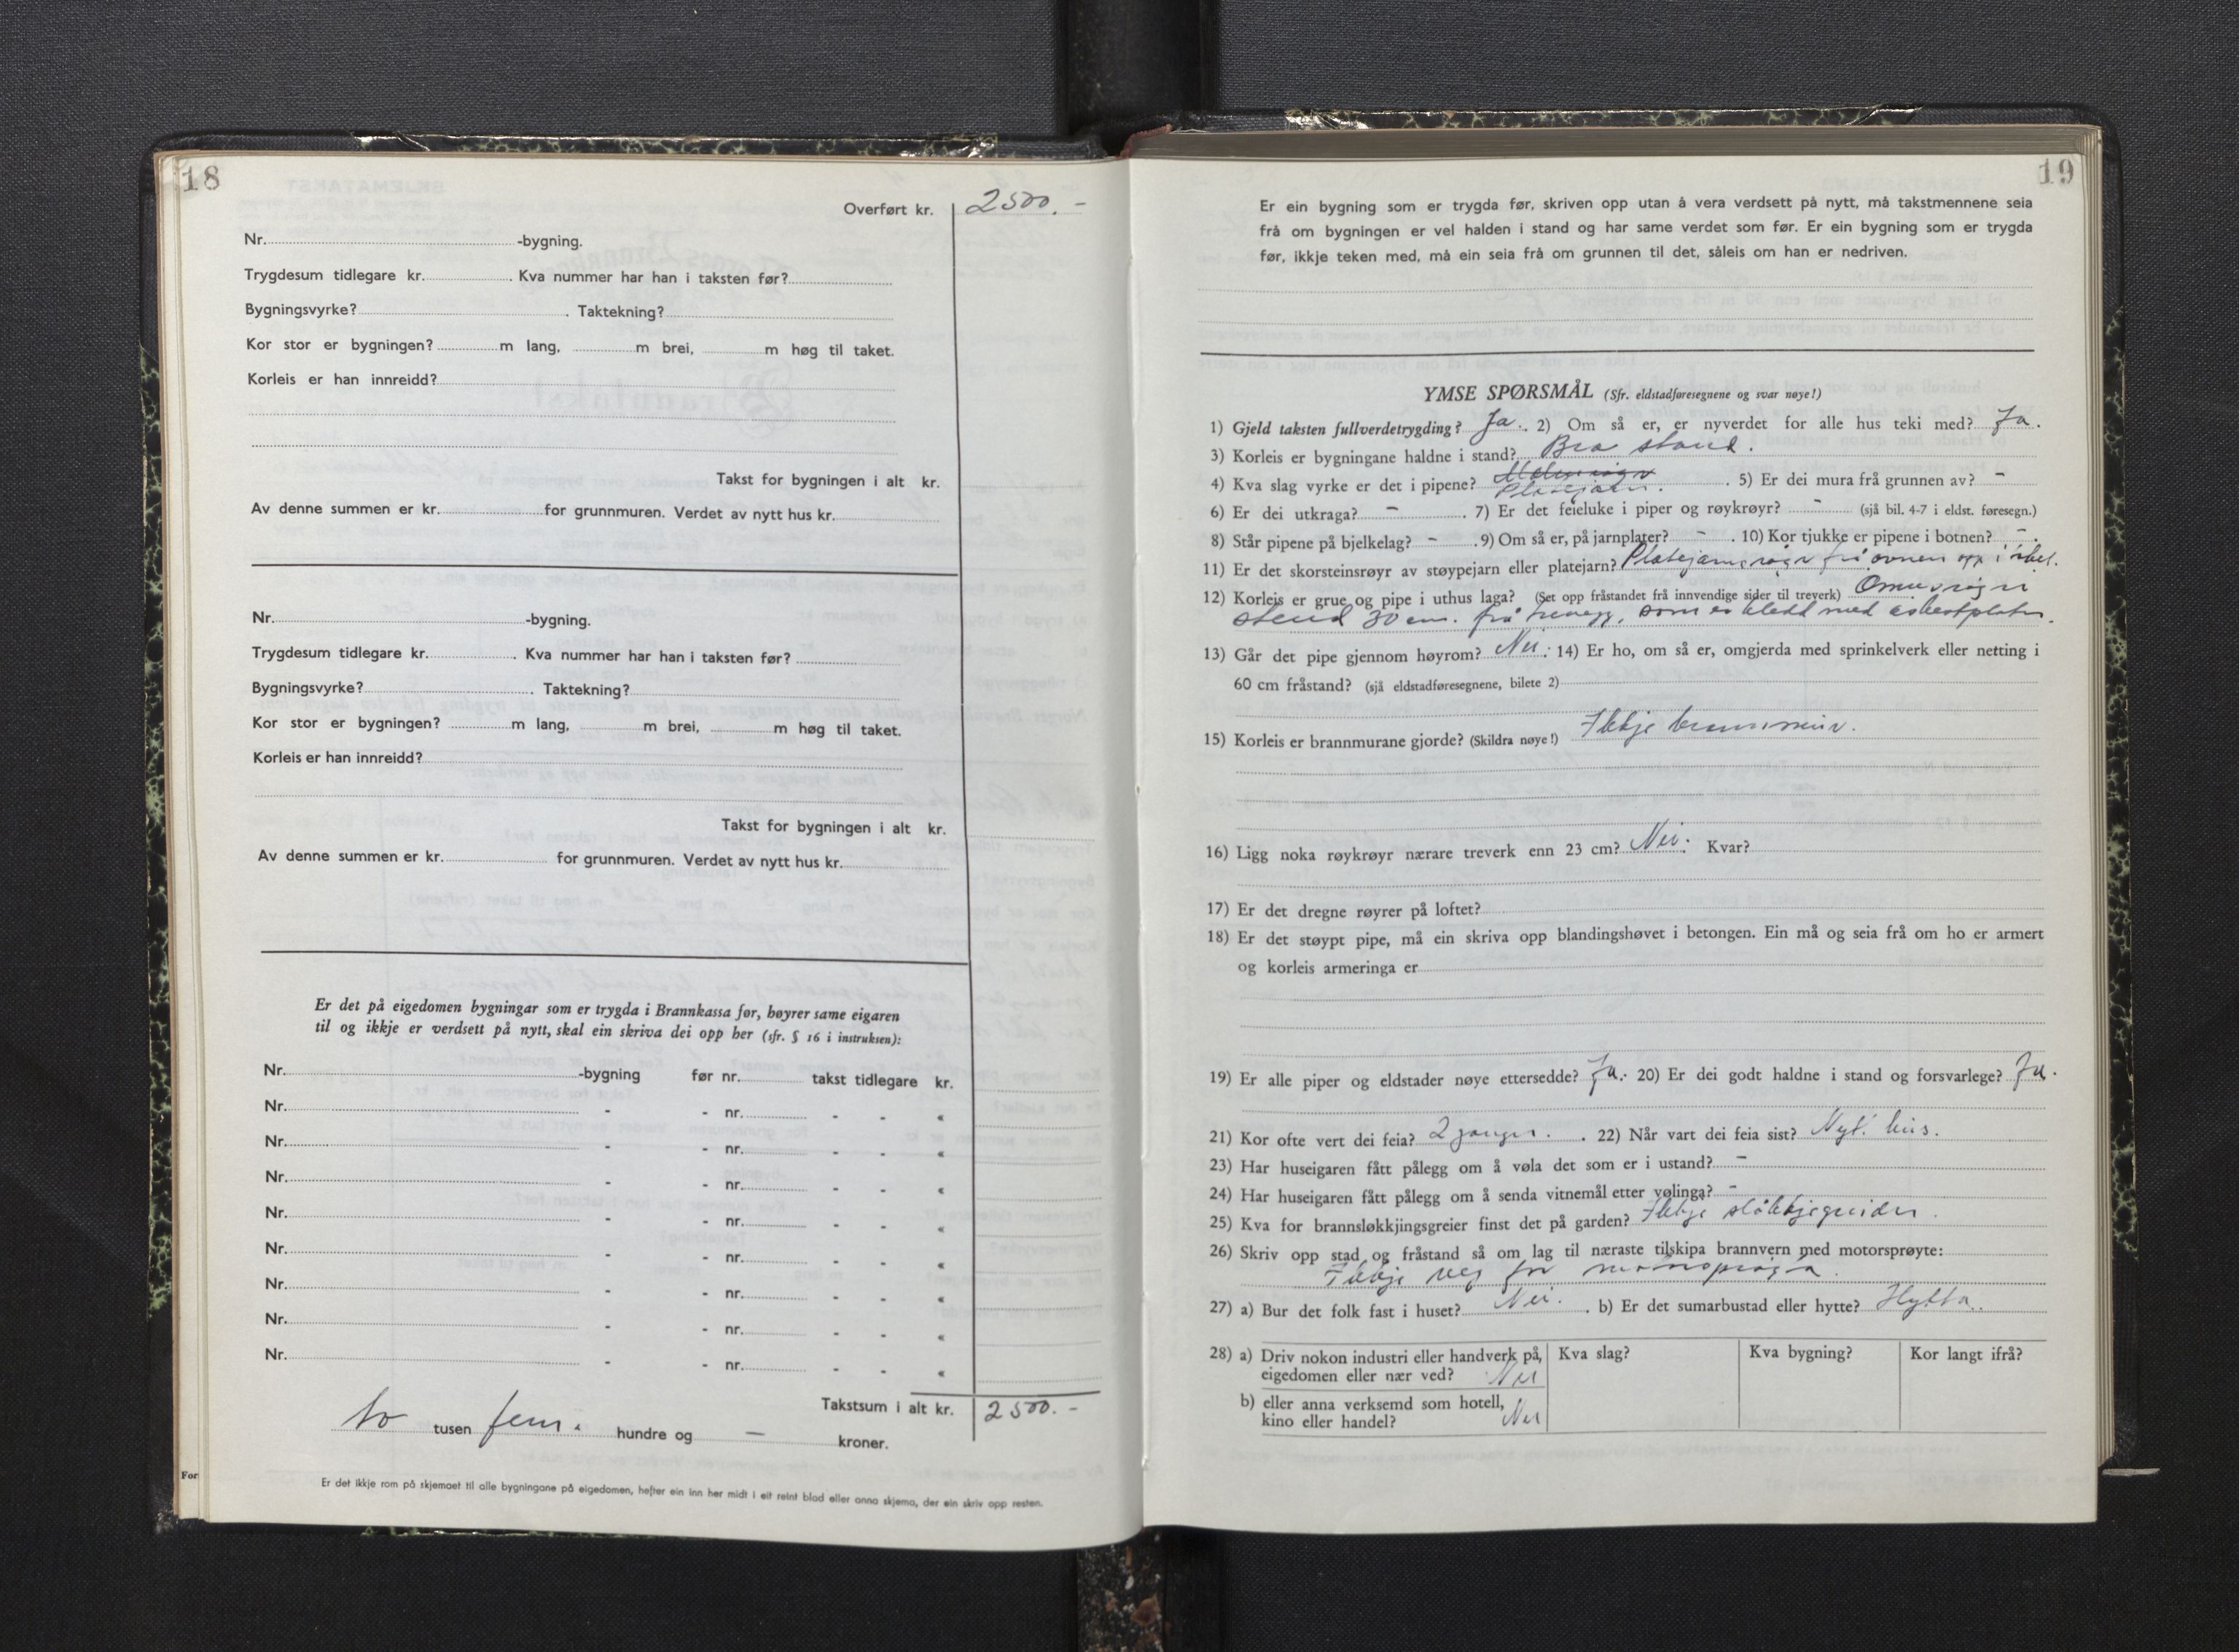 18
Overført kr. 2500.-
Nr. -bygning.
Trygdesum tidlegare kr. . Kva nummer har han i taksten før?
Bygningsvyrke? . Taktekning?
Kor stor er bygningen? m lang, m brei, m høg til taket.
Korleis er han innreidd?
Takst for bygningen i alt kr.
Av denne summen er kr. for grunnmuren. Verdet av nytt hus kr.
Nr. -bygning.
Trygdesum tidlegare kr. . Kva nummer har han i taksten før?
Bygningsvyrke? . Taktekning?
Kor stor er bygningen? m lang, m brei, m høg til taket.
Korleis er han innreidd?
Takst for bygningen i alt kr.
Av denne summen er kr. for grunnmuren. Verdet av nytt hus kr.
Er det på eigedomen bygningar som er trygda i Brannkassa før, høyrer same eigaren
til og ikkje er verdsett på nytt, skal ein skriva dei opp her (sfr. § 16 i instruksen):
Nr. -bygning før nr. takst tidlegare kr.
Nr. - - nr. - - «
Nr. - - nr. - - «
Nr. - - nr. - - «
Nr. - - nr. - - «
Nr. - - nr. - - «
Nr. - - nr. - - «
Nr. - - nr. - - «
Nr. - - nr. - - «
Takstsum i alt kr. 2500.-
to tusen fem. hundre og — kroner.
For
Er det ikkje rom på skjemaet til alle bygningane på eigedomen, hefter ein inn her midt i eit reint blad eller anna skjema, der ein skriv opp resten.
19
Er ein bygning som er trygda før, skriven opp utan å vera verdsett på nytt, må takstmennene seia
frå om bygningen er vel halden i stand og har same verdet som før. Er ein bygning som er trygda
før, ikkje teken med, må ein seia frå om grunnen til det, såleis om han er nedriven.
YMSE SPØRSMÅL (Sfr. eldstadføresegnene og svar nøye!)
1) Gjeld taksten fullverdetrygding? Ja. 2) Om så er, er nyverdet for alle hus teki med? Ja.
3) Korleis er bygningane haldne i stand? Bra stand.
4) Kva slag vyrke er det i pipene? Platejarn. . 5) Er dei mura frå grunnen av? -
6) Er dei utkraga? - . 7) Er det feieluke i piper og røykrøyr? - (sjå bil. 4-7 i eldst. føresegn.)
8) Står pipene på bjelkelag? - . 9) Om så er, på jarnplater? - . 10) Kor tjukke er pipene i botnen? - .
11) Er det skorsteinsrøyr av støypejarn eller platejarn? Platejarnsrøyr frå ovnen opp i
12) Korleis er grue og pipe i uthus laga? (Set opp fråstandet frå innvendige sider til treverk) Omnsrøyri
stend 30 cm. frå trevegg, som er kledd med asbestplater.
13) Går det pipe gjennom høyrom? Nei. 14) Er ho, om så er, omgjerda med sprinkelverk eller netting i
60 cm fråstand? (sjå eldstadføresegnene, bilete 2)
15) Korleis er brannmurane gjorde? (Skildra nøye!) Ikkje brannmur.
16) Ligg noka røykrøyr nærare treverk enn 23 cm? Nei. Kvar?
17) Er det dregne røyrer på loftet?
18) Er det støypt pipe, må ein skriva opp blandingshøvet i betongen. Ein må og seia frå om ho er armert
og korleis armeringa er
19) Er alle piper og eldstader nøye ettersedde? Ja. 20) Er dei godt haldne i stand og forsvarlege? Ja.
21) Kor ofte vert dei feia? 2 ganger. . 22) Når vart dei feia sist? Nytt hus.
23) Har huseigaren fått pålegg om å vøla det som er i ustand? -
24) Har huseigaren fått pålegg om å senda vitnemål etter vølinga? -
25) Kva for brannsløkkjingsgreier finst det på garden? Ikkje sløkkjegreider.
26) Skriv opp stad og fråstand så om lag til næraste tilskipa brannvern med motorsprøyte:
Ikkje veg for motorsprøyta.
27) a) Bur det folk fast i huset? Nei. . b) Er det sumarbustad eller hytte? Hytta.
28) a) Driv nokon industri eller handverk på, eigedomen eller nær ved? Nei Kva slag? Kva bygning? Kor langt ifrå?
b) eller anna verksemd som hotell, kino eller handel? Nei